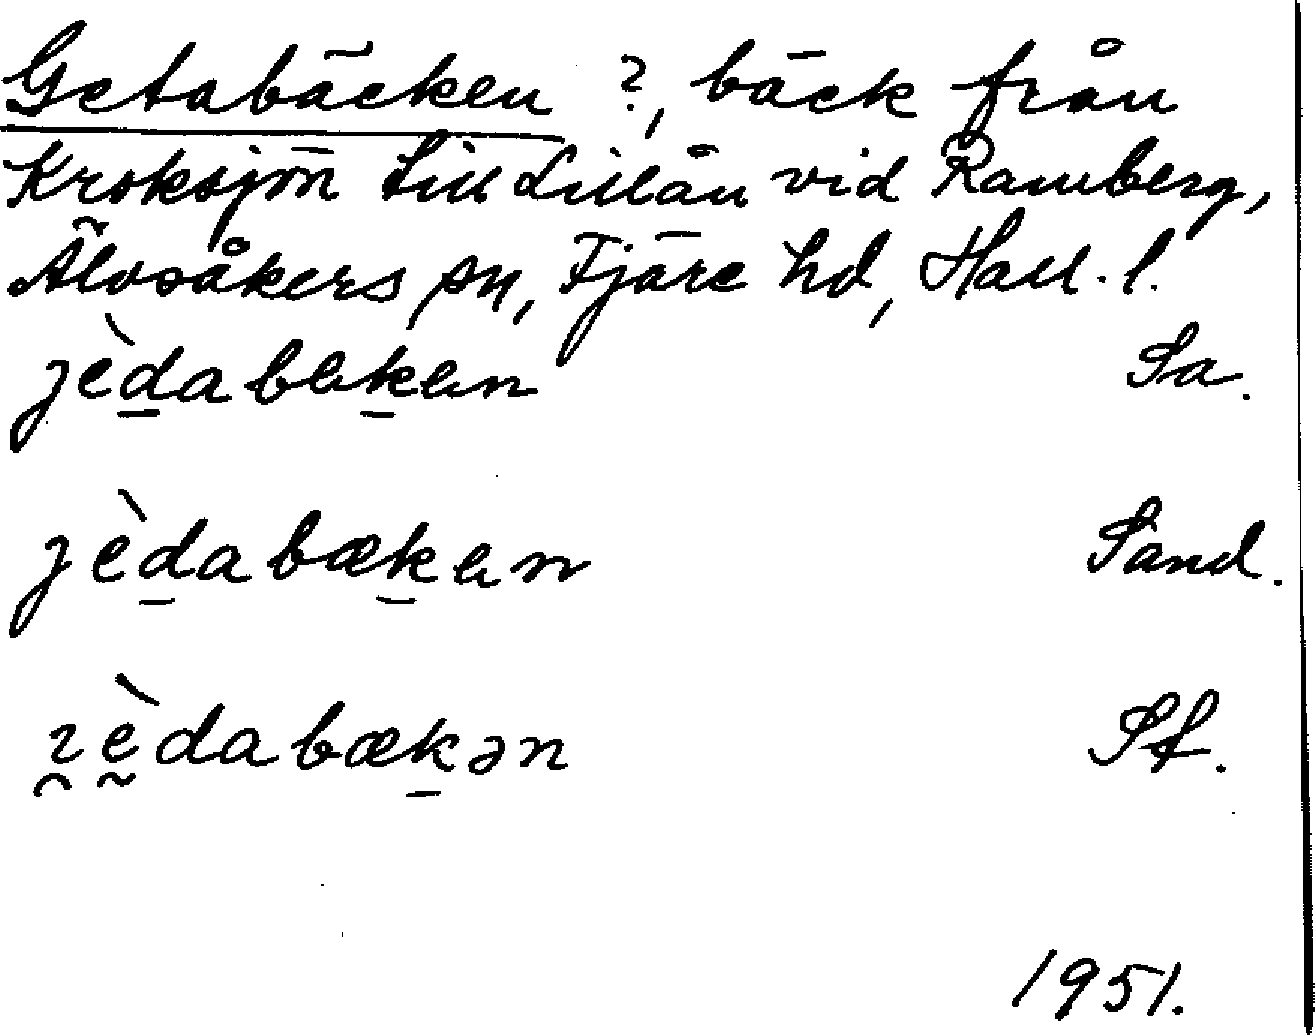 Getabäcken ?, bäck från
Kroksjön till Lillån vid Ramberg,
Älvsåkers sn, Fjäre hd, Hall. l.
jèdabakan Sa.
jèdabækan Sand.
ʒèdabækən Sf.
1951.